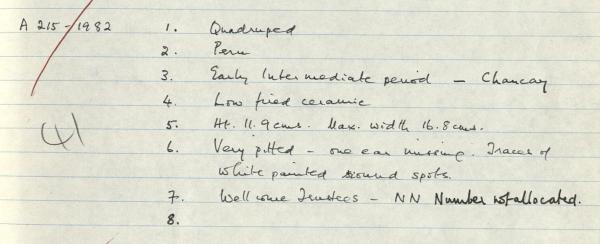 A 215-1982 1. Quadruped
2. Peru
3. Early Intermediate period — Chancay
4. Low fired ceramic
5. Ht. 11.9cms. Max. width 16.8cms.
6. Very pitted – one ear missing. Traces of
white painted round spots.
7. Wellcome Trustees – NN Number not allocated.
8.